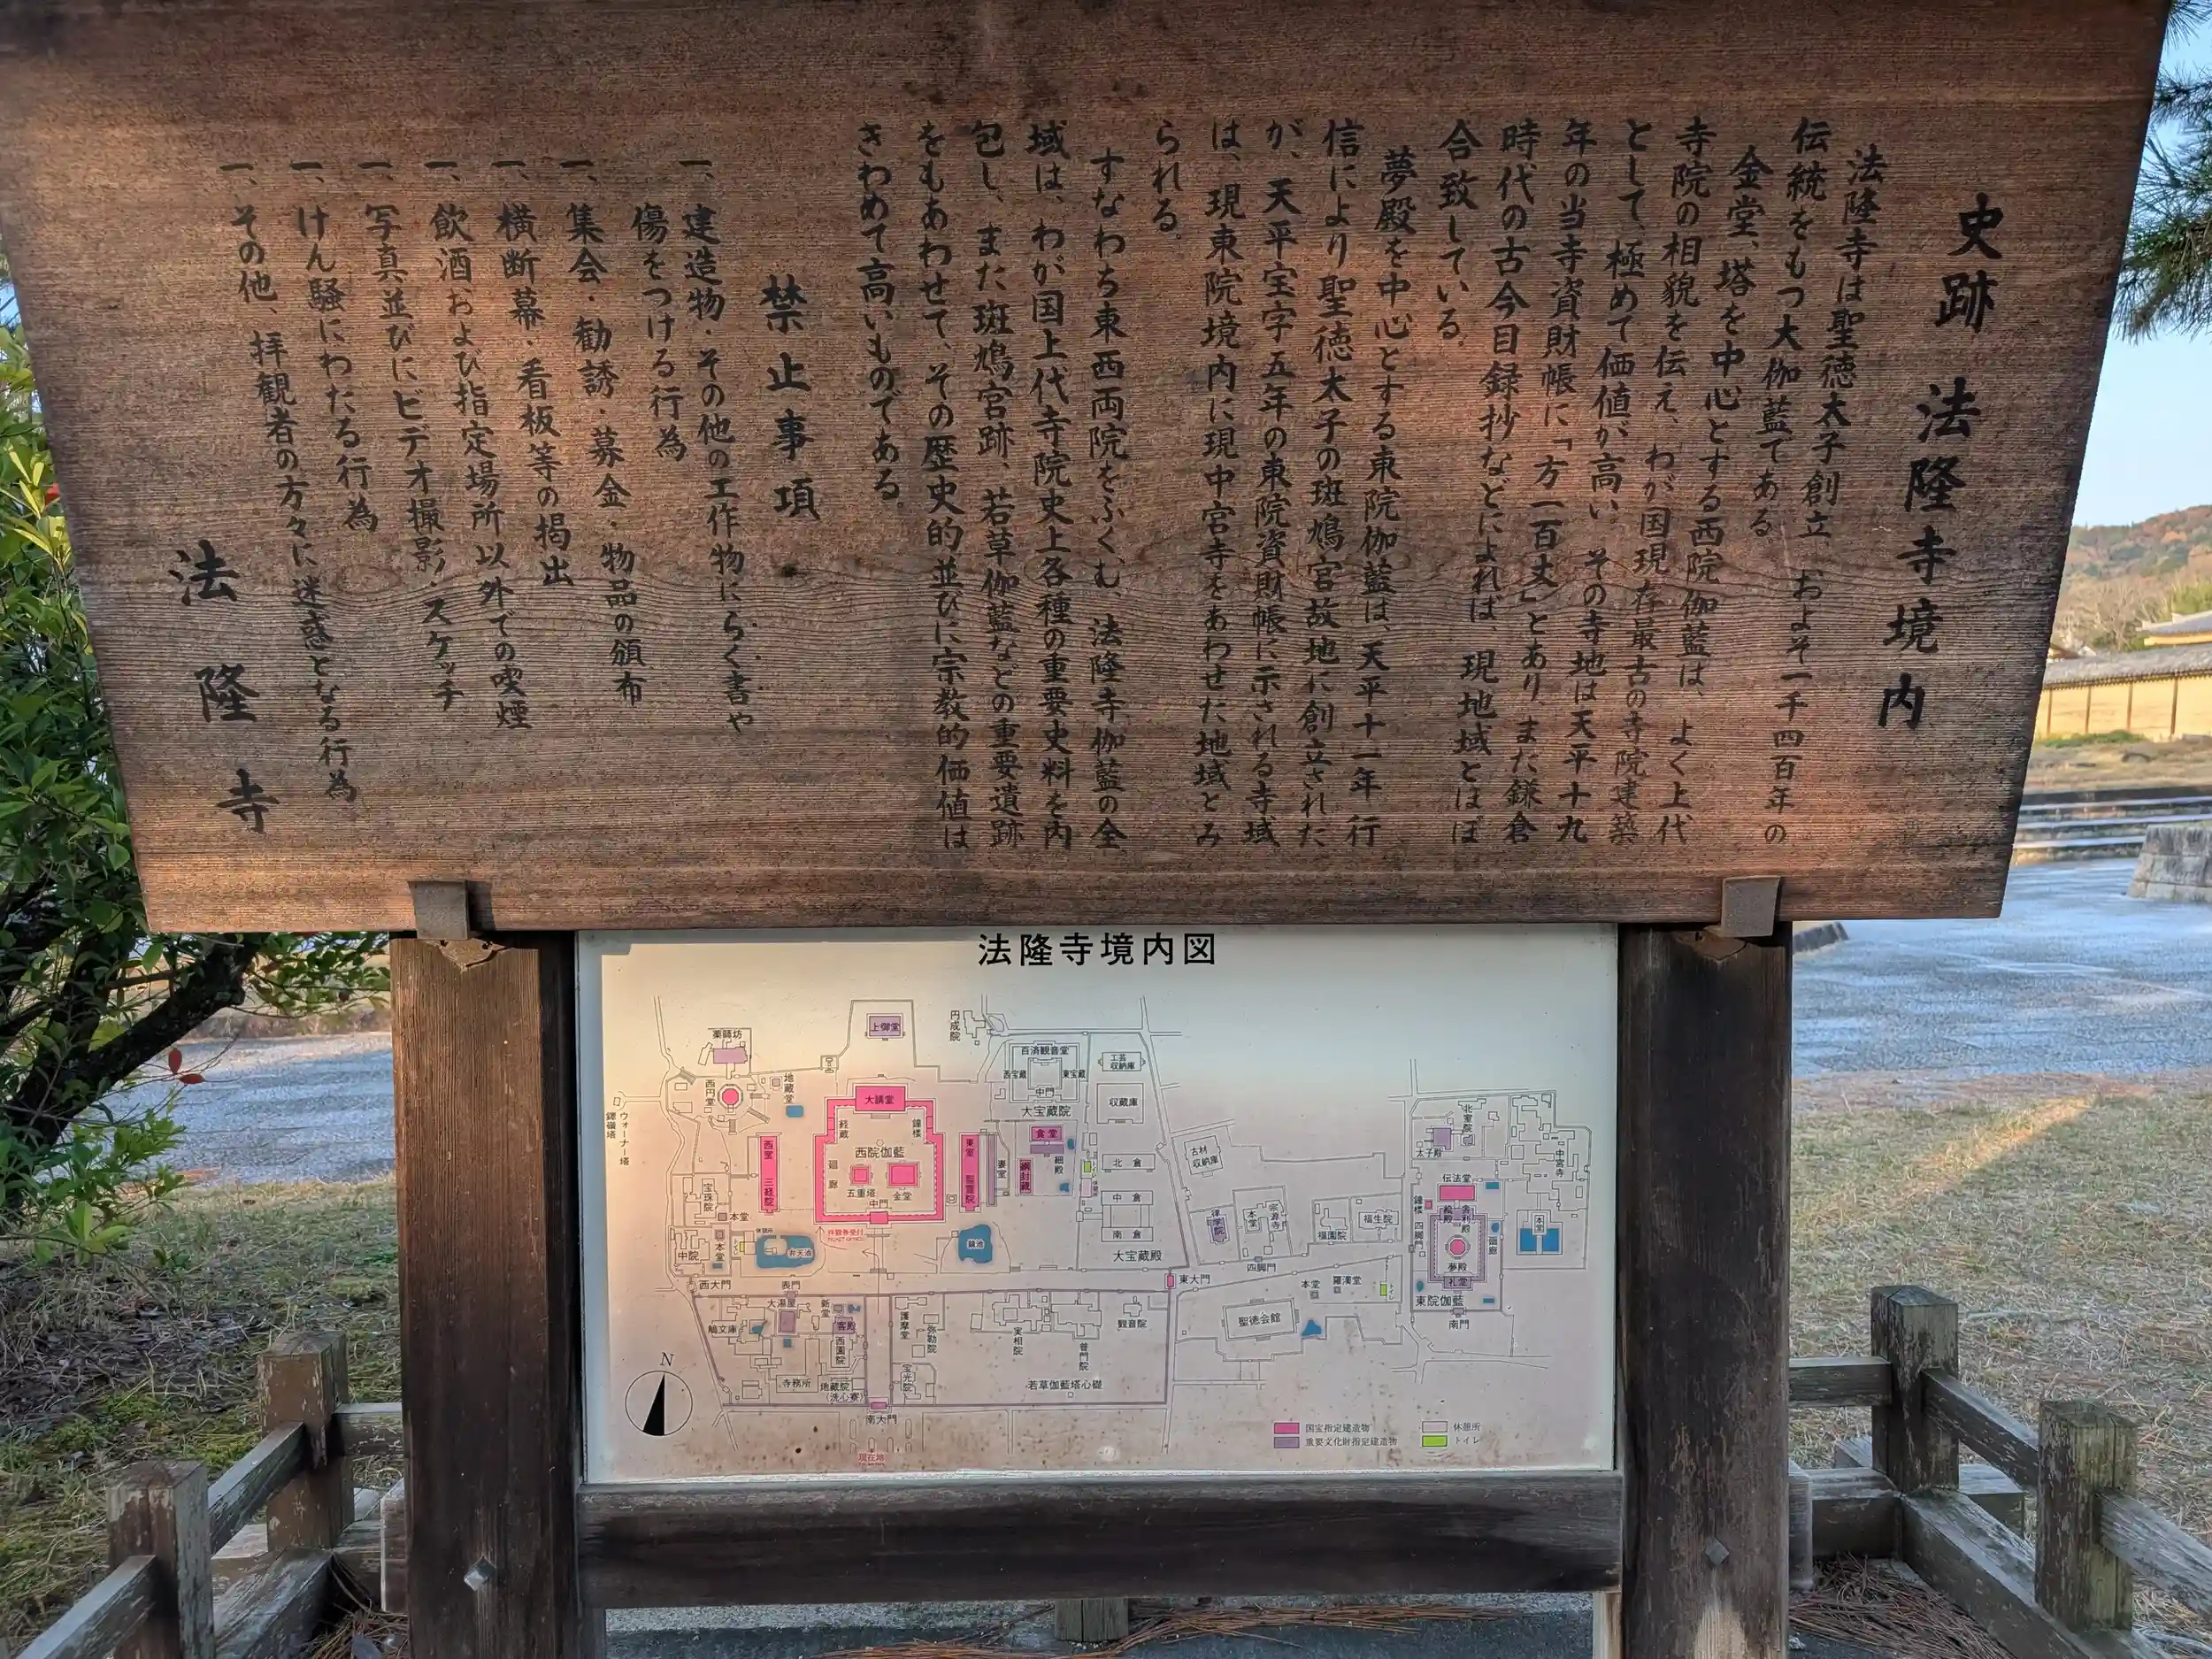 史跡 法隆寺境内
法隆寺は聖徳太子創立、およそ一千四百年の
伝統をもつ大伽藍である
金堂、塔を中心とする西院伽藍は、よく上代
寺院の相貌を伝え、わが国現存最古の寺院建築
として、極めて価値が高い。その寺地は天平十九
年の当寺資財帳に「方一百丈」とあり、また鎌倉
時代の古今目録抄などによれば、現地域とほぼ
合致している。
夢殿を中心とする東院伽藍は、天平十一年行
信により聖徳太子の斑鳩宮故地に創立された
が、天平宝字五年の東院資財帳に示される寺域
は、現東院境内に現中宮寺をあわせた地域とみ
られる。
すなわち東西両院をふくむ、法隆寺伽藍の全
域は、わが国上代寺院史上各種の重要史料を内
包し、また斑鳩宮跡、若草伽藍などの重要遺跡
をもあわせて、その歴史的並びに宗教的価値は
きわめて高いものである。
禁止事項
一、建造物・その他の工作物にらく書や
傷をつける行為
一、集会・勧誘・募金・物品の頒布
一、横断幕・看板等の掲出
一、飲酒および指定場所以外での喫煙
一、写真並びにビデオ撮影・スケッチ
一、けん騒にわたる行為
一、その他、拝観者の方々に迷惑となる行為
法隆寺
法隆寺境内図
上御堂
円成院
薬師坊
西円堂
地蔵堂
大講堂
経蔵
鐘楼
西院伽藍
廻廊
五重塔
金堂
中門
西室
三経院
東室
聖霊院
妻室
百済観音堂
西宝蔵
東宝蔵
中門
大宝蔵院
工芸
収納庫
収蔵庫
食堂
細殿
綱封蔵
トイレ
北倉
中倉
南倉
大宝蔵殿
ウォーナー塔
宝珠院
本堂
中院
本堂
弁天池
鏡池
西大門
表門
東大門
大湯屋
新堂
客殿
鵤文庫
西園院
寺務所
地蔵院
(洗心寮)
護摩堂
弥勒院
宝光院
実相院
普門院
観音院
若草伽藍塔心礎
南大門
現在地
古材
収納庫
律学院
本堂
宗源寺
福園院
福生院
四脚門
本堂
羅漢堂
トイレ
聖徳会館
北室院
太子殿
中宮寺
本堂
伝法堂
鐘楼
絵殿
舎利殿
四脚門
廻廊
夢殿
礼堂
東院伽藍
南門
N
国宝指定建造物
重要文化財指定建造物
休憩所
トイレ